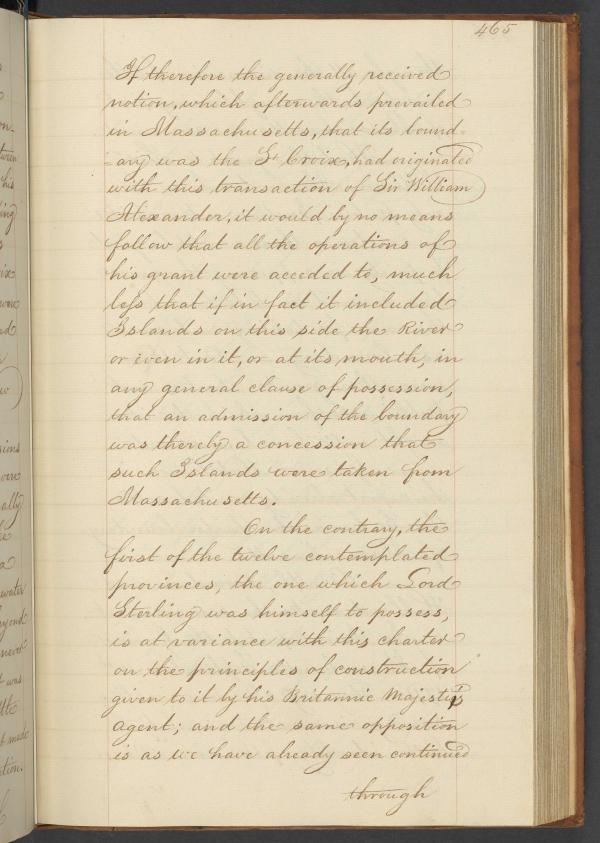 465
If therefore the generally received
notion, which afterwards prevailed
in Massachusetts, that its bound-
-ary was the St Croix, had originated
with this transaction of Sir William
Alexander, it would by no means
follow that all the operations of
his grant were acceded to, much
less that if in fact it included
Islands on this side the River
or even in it, or at its mouth, in
any general clause of possession,
that an admission of the boundary
was thereby a concession that
such Islands were taken from
Massachusetts.
On the contrary, the
first of the twelve contemplated
provinces, the one which Lord
Sterling was himself to possess,
is at variance with this charter
on the principles of construction
given to it by his Britannic Majestys
agent; and the same opposition
is as we have already seen continued
through